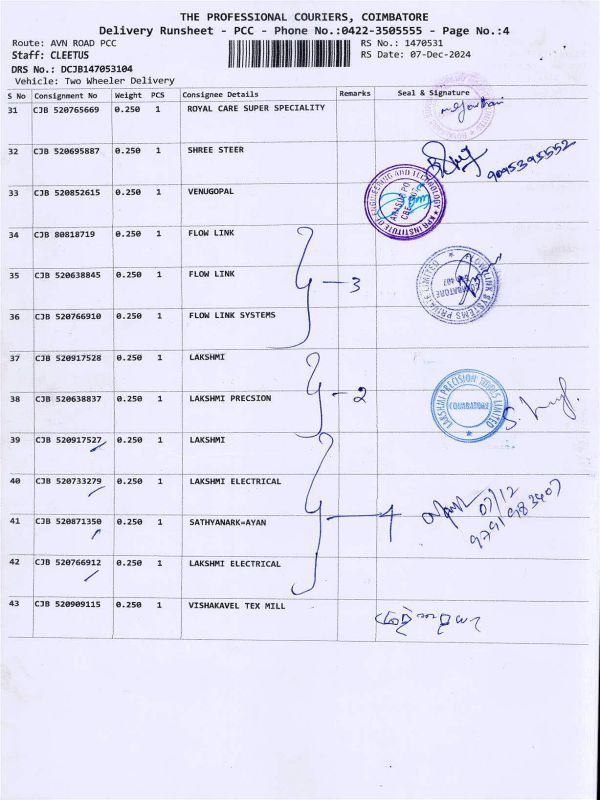 THE PROFESSIONAL COURIERS, COIMBATORE
Delivery Runsheet - PCC - Phone No.:0422-3505555 - Page No.:4
Route: AVN ROAD PCC RS No.: 1470531
Staff: CLEETUS RS Date: 07-Dec-2024
DRS No.: DCJB147053104
Vehicle: Two Wheeler Delivery
S No Consignment No Weight PCS Consignee Details Remarks Seal & Signature
31 CJB 520765669 0.250 1 ROYAL CARE SUPER SPECIALITY
32 CJB 520695887 0.250 1 SHREE STEER 9095395552
33 CJB 520852615 0.250 1 VENUGOPAL
KPR INSTITUTE OF ENGINEERING AND TECHNOLOGY
ARASUR PO
34 CJB 80818719 0.250 1 FLOW LINK
35 CJB 520638845 0.250 1 FLOW LINK 3
FLOWLINK SYSTEMS PRIVATE LIMITED
COIMBATORE
36 CJB 520766910 0.250 1 FLOW LINK SYSTEMS
37 CJB 520917528 0.250 1 LAKSHMI
38 CJB 520638837 0.250 1 LAKSHMI PRECSION 2
LAKSHMI PRECISION TOOLS LIMITED
COIMBATORE
39 CJB 520917527 0.250 1 LAKSHMI
40 CJB 520733279 0.250 1 LAKSHMI ELECTRICAL
41 CJB 520871350 0.250 1 SATHYANARK=AYAN 4 07/12
9791983407
42 CJB 520766912 0.250 1 LAKSHMI ELECTRICAL
43 CJB 520909115 0.250 1 VISHAKAVEL TEX MILL